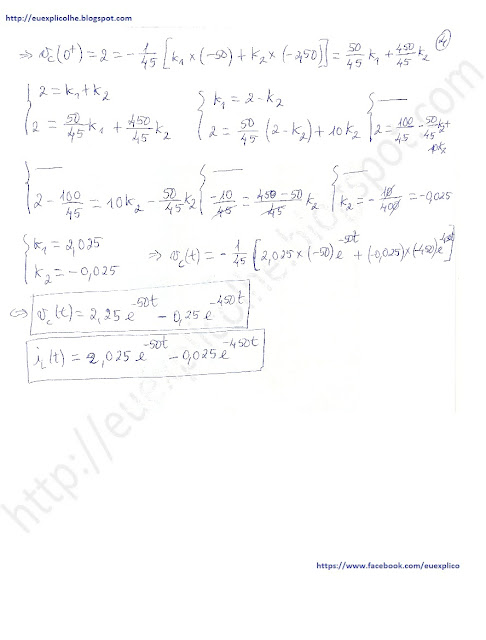 http://euexplicolhe.blogspot.com
④
⇒ v_c(0⁺) = 2 = -1/45 [k₁ × (-50) + k₂ × (-450)] = 50/45 k₁ + 450/45 k₂
{ 2 = k₁ + k₂ { k₁ = 2 - k₂ { ——
{ 2 = 50/45 k₁ + 450/45 k₂ { 2 = 50/45 (2 - k₂) + 10k₂ { 2 = 100/45 - 50/45 k₂ + 10k₂
{ —— { —— { ——
{ 2 - 100/45 = 10k₂ - 50/45 k₂ { -10/45 = (450-50)/45 k₂ { k₂ = -10/400 = -0,025
{ k₁ = 2,025
{ k₂ = -0,025 ⇒ v_c(t) = -1/45 [2,025 × (-50)e^-50t + (-0,025) × (-450)e^-450t]
⇔ v_c(t) = 2,25 e^-50t - 0,25 e^-450t
i_L(t) = 2,025 e^-50t - 0,025 e^-450t
http://euexplicolhe.blogspot.com
https://www.facebook.com/euexplico